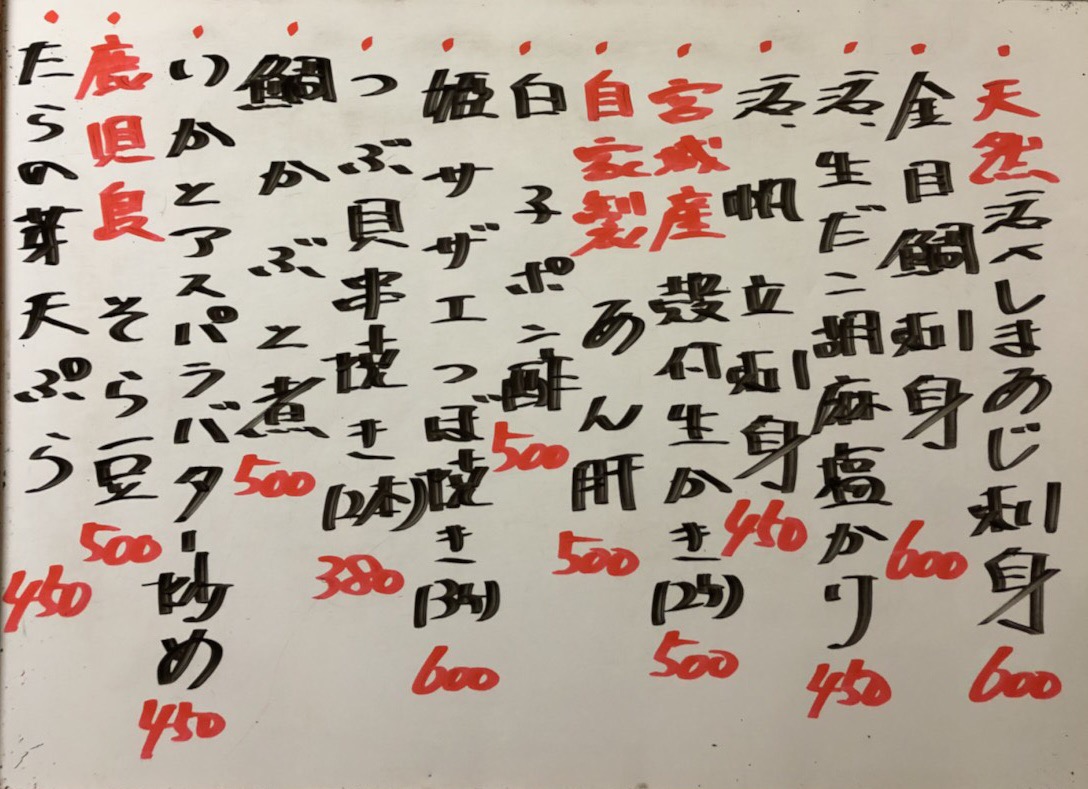 天然活〆しまあじ刺身 600
金目鯛刺身 600
活、生だこ胡麻塩かり 450
活、帆立刺身 450
宮城産 殻付生かき(2ヶ) 500
自家製 あん肝 500
白子ポン酢 500
姫サザエつぼ焼き(3ヶ) 600
つぶ貝串焼き(2本) 380
鯛かぶと煮 500
いかとアスパラバター炒め 450
鹿児島 そら豆 500
たらの芽天ぷら 450